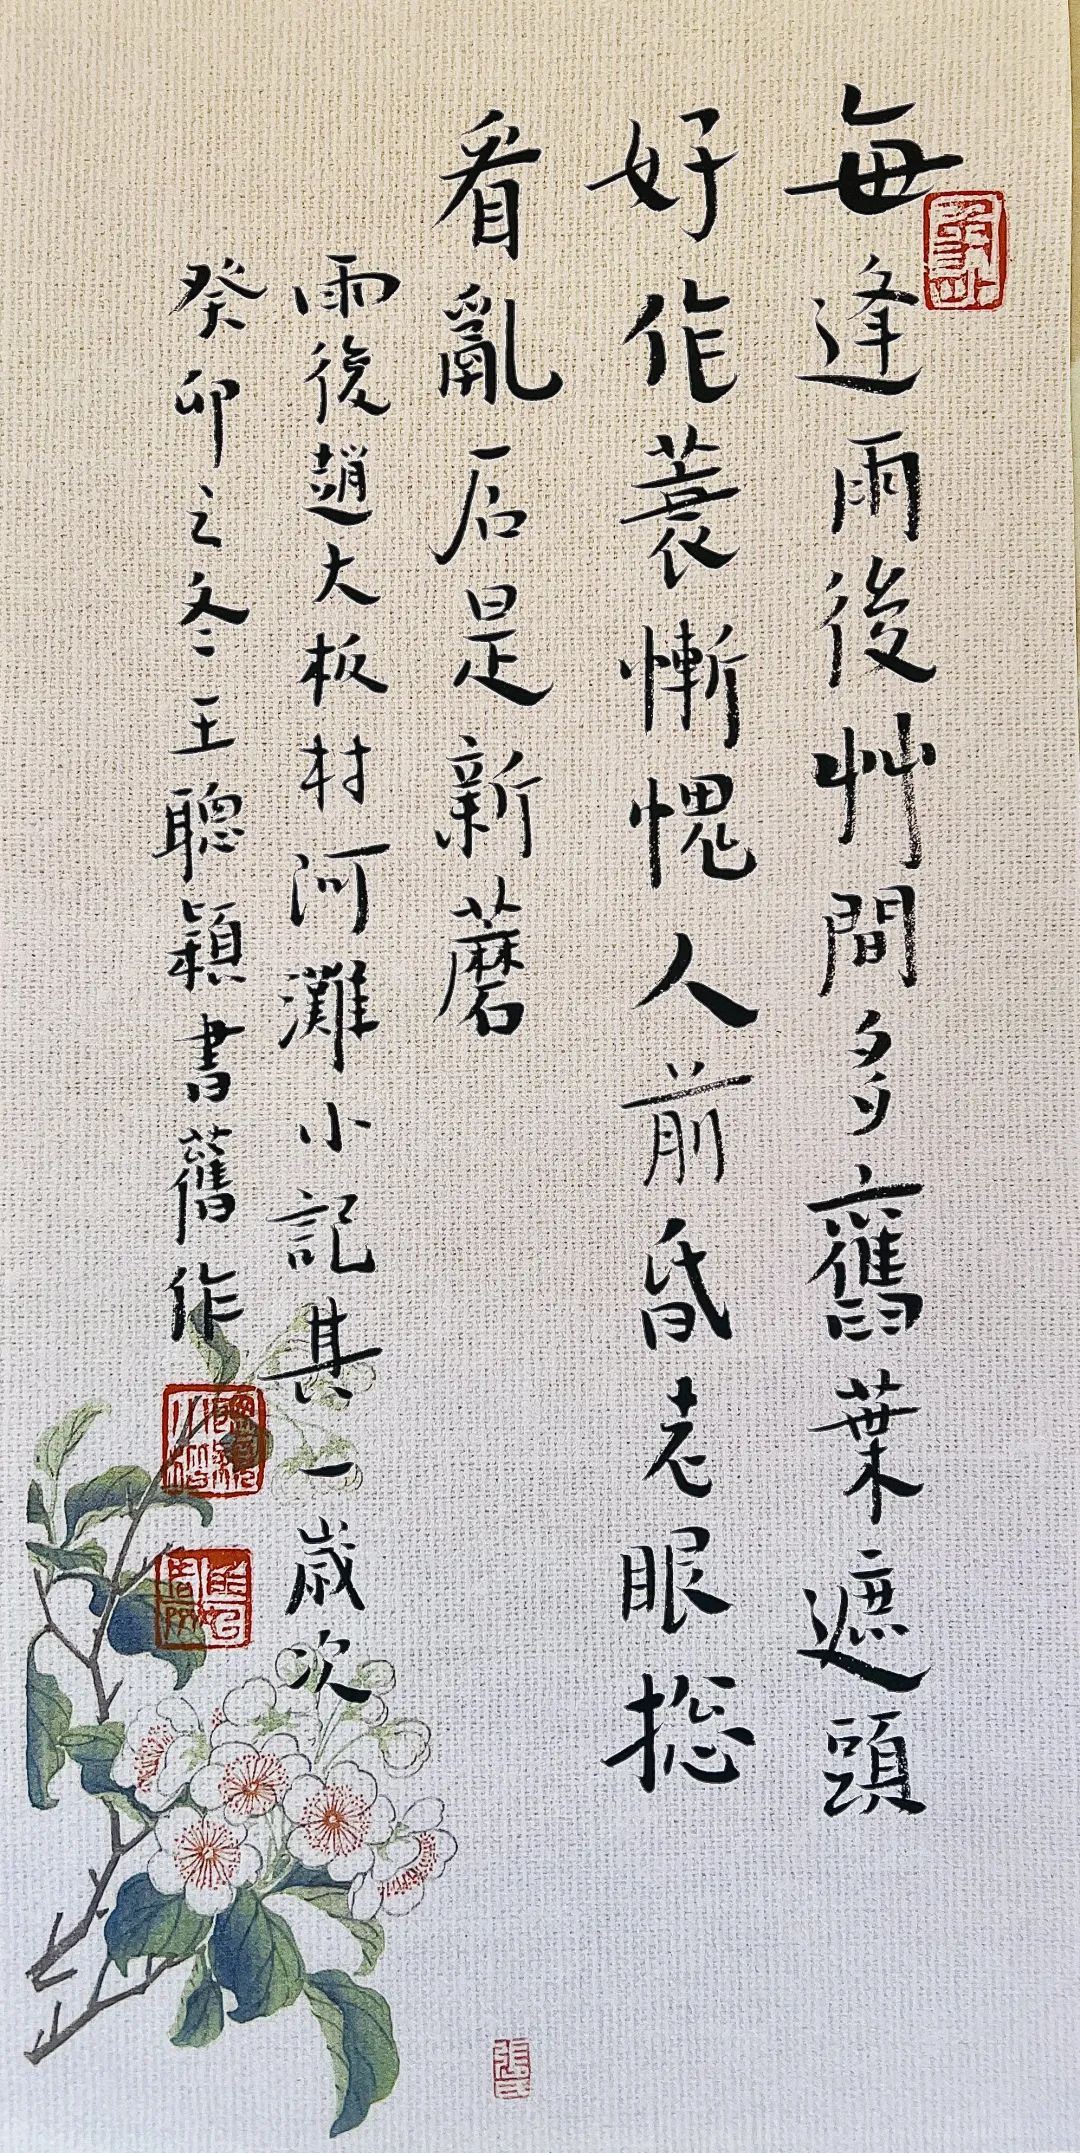 每逢雨後艸間多舊葉遮頭
好作蓑慚愧人前昏老眼總
看亂石是新蘑
雨後趙大板村河灘小記其一歲次
癸卯之冬王聰穎書舊作